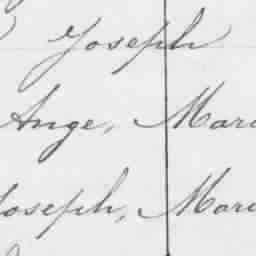 Joseph
Ange, Mari
Joseph, Mari